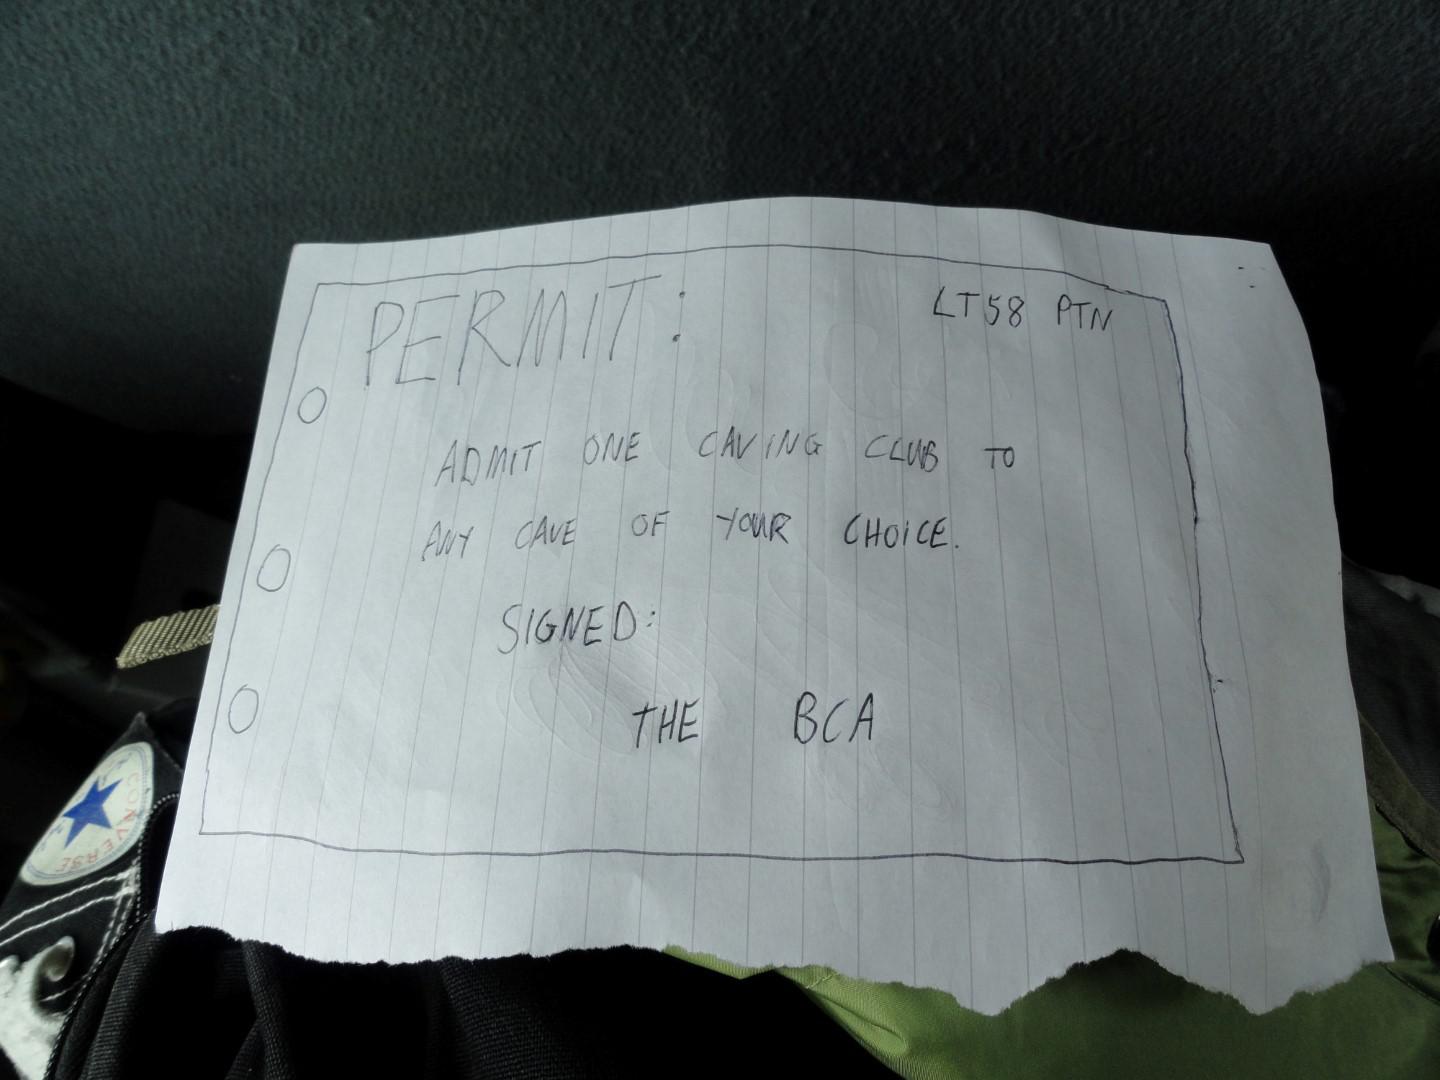 PERMIT:
LT58 PTN
ADMIT ONE CAVING CLUB TO
ANY CAVE OF YOUR CHOICE.
SIGNED:
THE BCA
CONVERSE